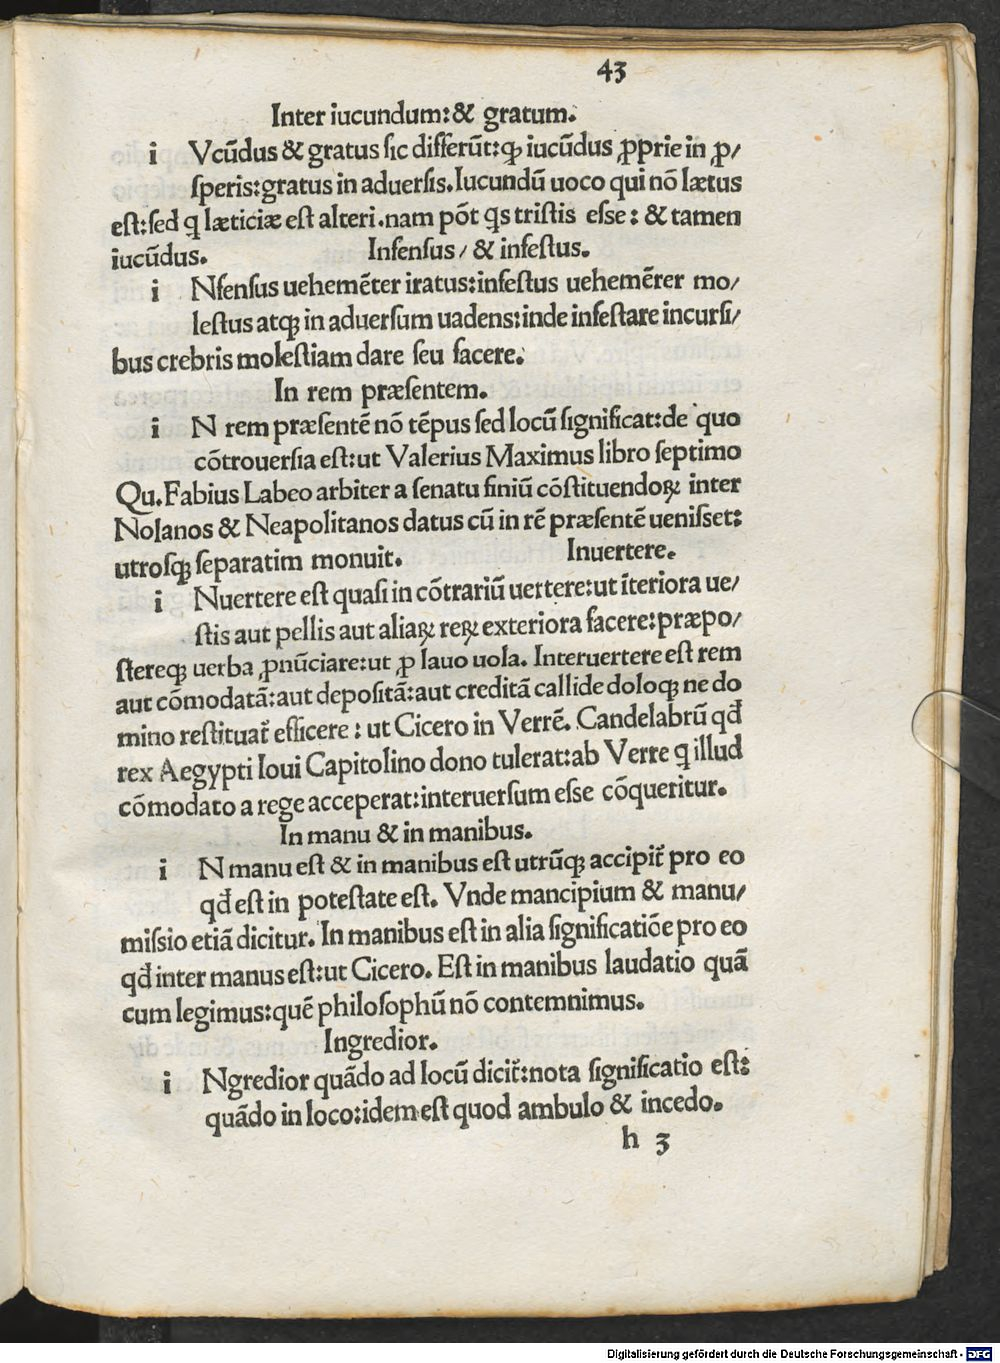 43
Inter iucundum: & gratum.
i Vcũdus & gratus sic differũt: ꝙ iucũdus ꝓprie in ꝓ/
speris: gratus in aduersis. Iucundũ uoco qui nõ lætus
est: sed q̃ læticiæ est alteri. nam põt q̃s tristis esse: & tamen
iucũdus. Infensus / & infestus.
i Nfensus uehemẽter iratus: infestus uehemẽrer mo/
lestus atqꝫ in aduersum uadens: inde infestare incursi/
bus crebris molestiam dare seu facere.
In rem præsentem.
i N rem præsentẽ nõ tẽpus sed locũ significat: de quo
cõtrouersia est: ut Valerius Maximus libro septimo
Qu. Fabius Labeo arbiter a senatu finiũ cõstituendoꝝ inter
Nolanos & Neapolitanos datus cũ in rẽ præsentẽ uenisset:
utrosqꝫ separatim monuit. Inuertere.
i Nuertere est quasi in cõtrariũ uertere: ut ĩteriora ue/
stis aut pellis aut aliaꝝ reꝝ exteriora facere: præpo/
stereqꝫ uerba ꝓnũciare: ut ꝓ lauo uola. Interuertere est rem
aut cõmodatã: aut depositã: aut creditã callide doloqꝫ ne do
mino restituat᷑ efficere: ut Cicero in Verrẽ. Candelabrũ qđ
rex Aegypti Ioui Capitolino dono tulerat: ab Verre q̃ illud
cõmodato a rege acceperat: interuersum esse cõqueritur.
In manu & in manibus.
i N manu est & in manibus est utrũqꝫ accipit᷑ pro eo
qđ est in potestate est. Vnde mancipium & manu/
missio etiã dicitur. In manibus est in alia significatiõe pro eo
qđ inter manus est: ut Cicero. Est in manibus laudatio quã
cum legimus: quẽ philosophũ nõ contemnimus.
Ingredior.
i Ngredior quãdo ad locũ dicit᷑: nota significatio est:
quãdo in loco: idem est quod ambulo & incedo.
h 3
Digitalisierung gefördert durch die Deutsche Forschungsgemeinschaft - DFG